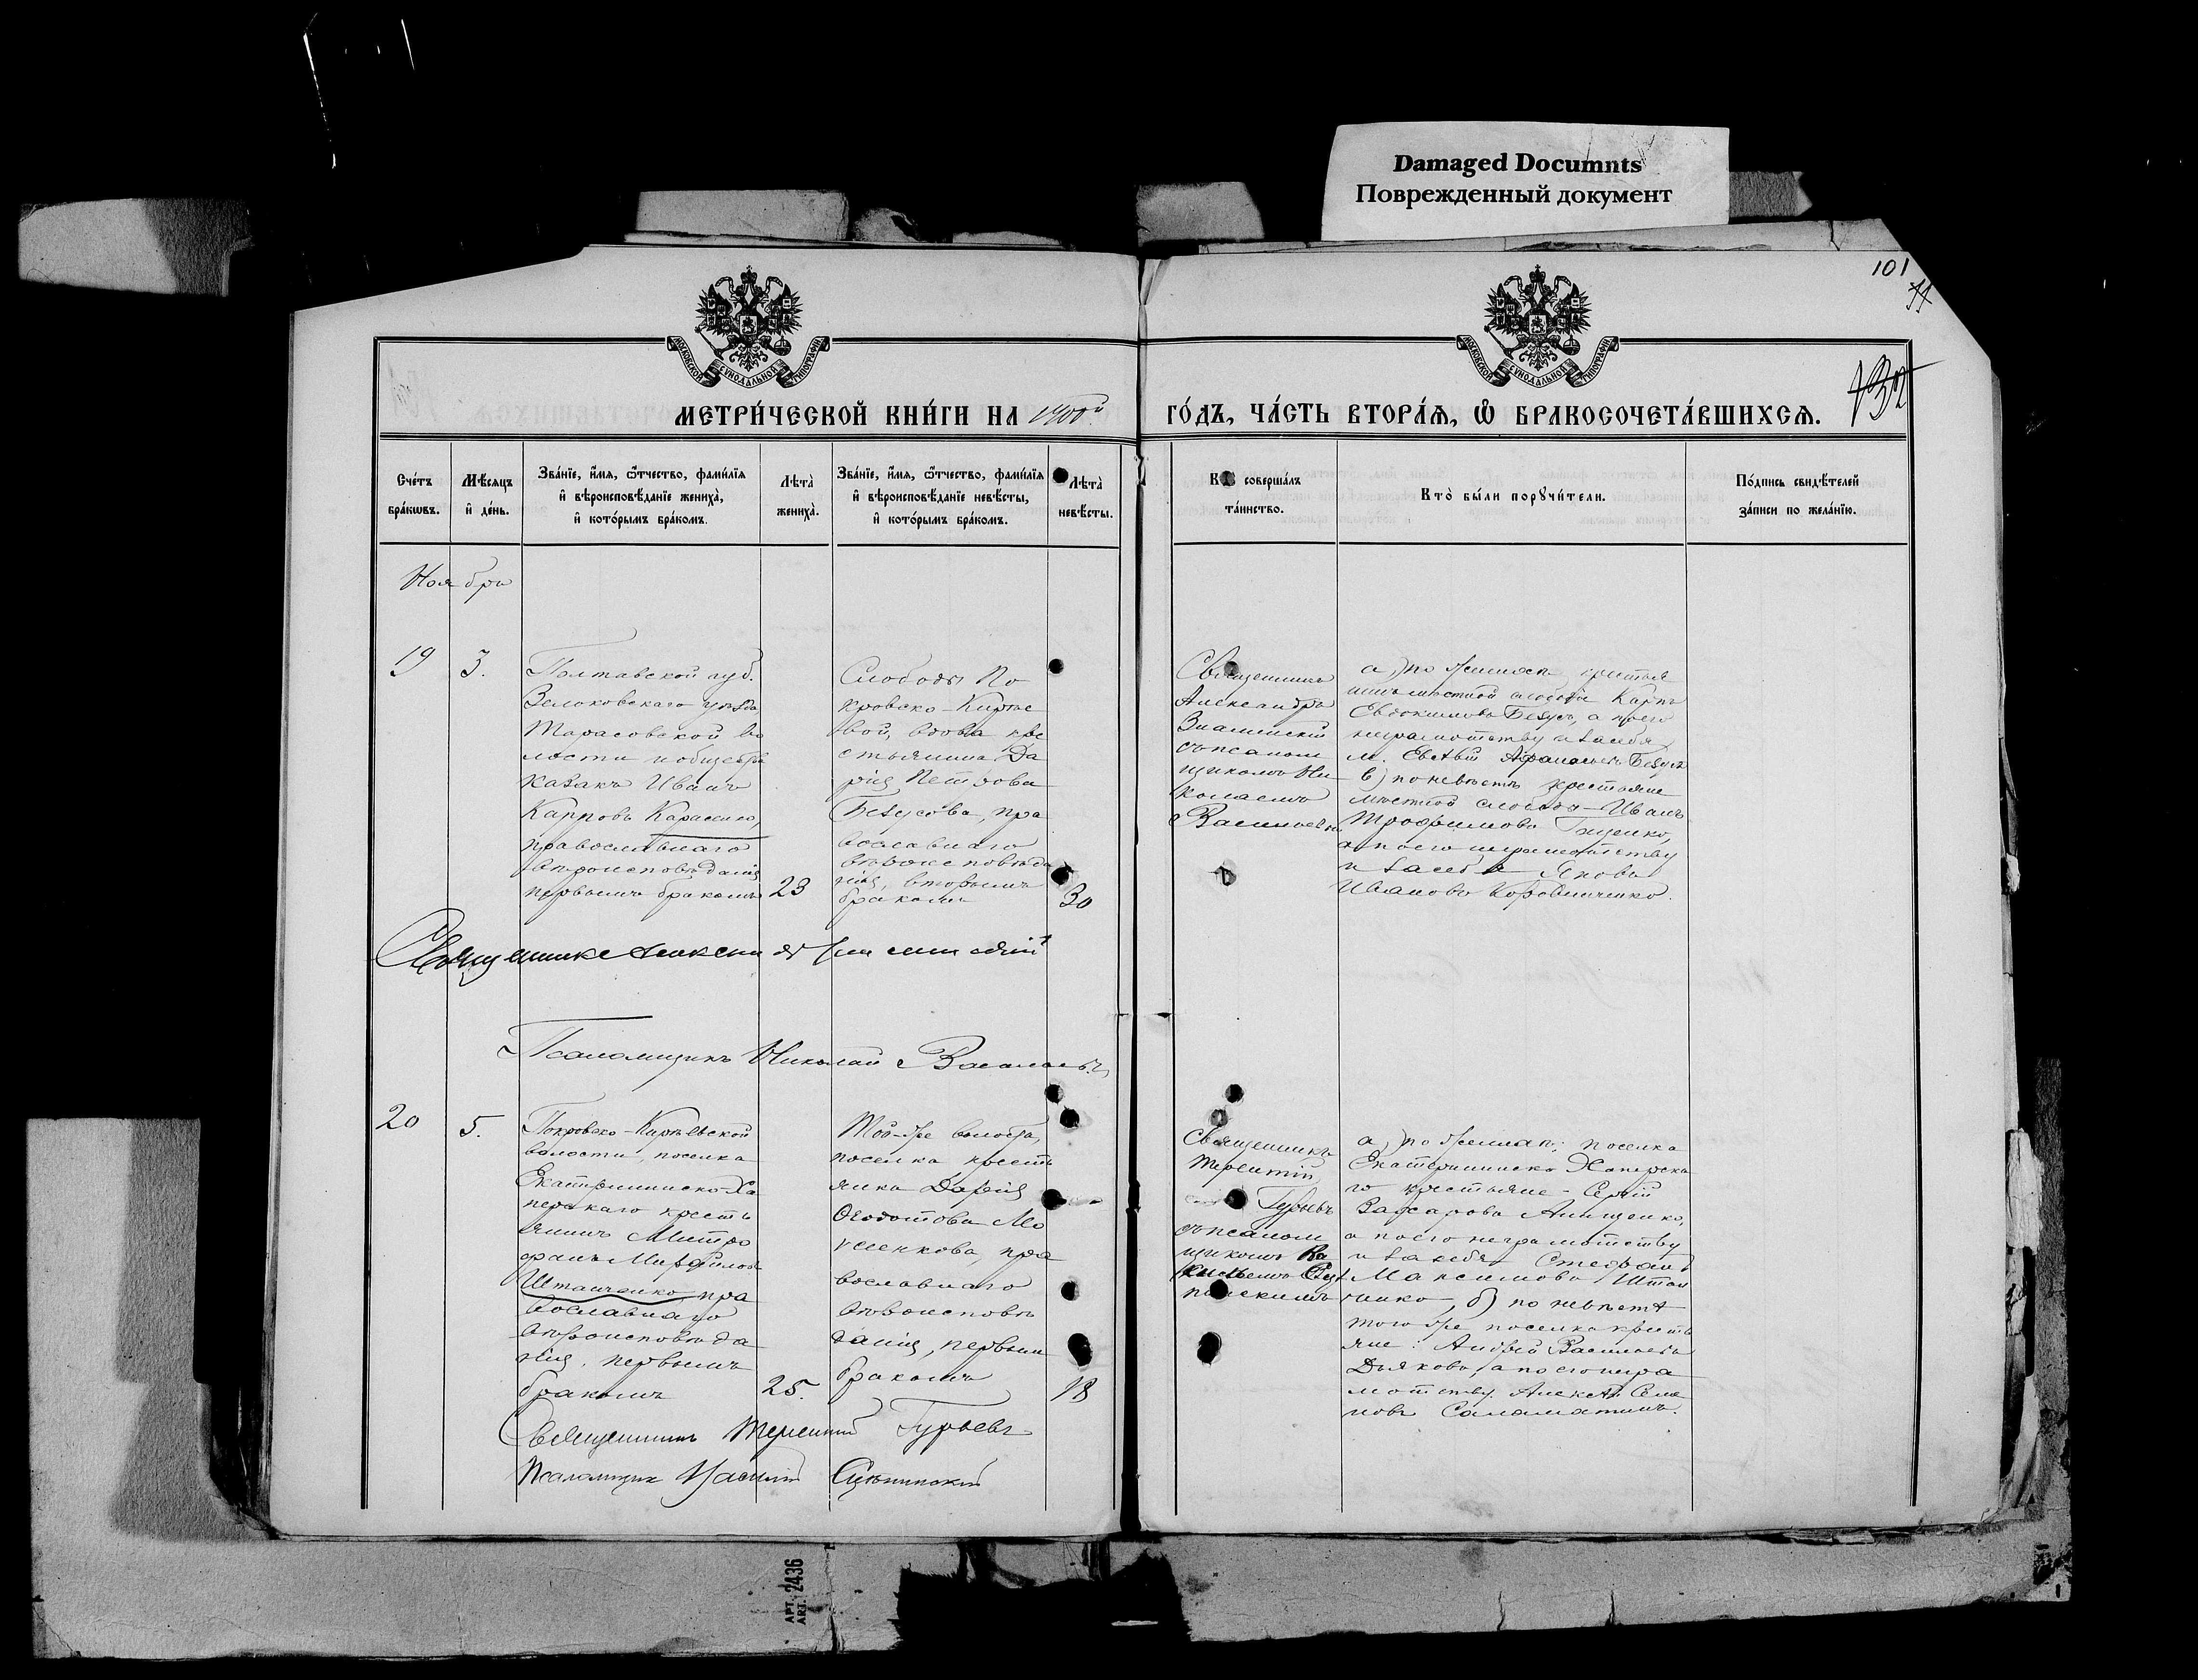 Damaged Documnts
Поврежденный документ
101
132
МОСКОВСКОЙ СУНОДАЛЬНОЙ ТИПОГРАФІИ
МОСКОВСКОЙ СУНОДАЛЬНОЙ ТИПОГРАФІИ
МЕТРИ́ЧЕСКОЙ КНИ́ГИ НА 1900й ГО́ДЪ, ЧА́СТЬ ВТОРА́Ѧ, Ѽ БРАКОСОЧЕТА́ВШИХСѦ.
Сче́тъ бра́кѡвъ.
Мѣ́сѧцъ и҆ де́нь.
Зва́нїе, и҆́мѧ, ѻ҆́тчество, фамі́лїѧ
и҆ вѣроисповѣ́данїе жениха̀,
и҆ кото́рымъ бра́комъ.
Лѣта̀ жениха̀.
Зва́нїе, и҆́мѧ, ѻ҆́тчество, фамі́лїѧ
и҆ вѣроисповѣ́данїе невѣ́сты,
и҆ кото́рымъ бра́комъ.
Лѣта̀ невѣ́сты.
соверша́лъ
та́инство.
Кто̀ бы́ли порꙋчи́тели.
По́дпись свидѣ́телей
за́писи по жела́нїю.
Ноября
19
3.
Полтавской губ.
Золоковскаго уѣзда
Тарасовской во
лости и общества
казакъ Иванъ
Карповъ Карасенко,
православнаго
вѣроисповѣданія
первымъ бракомъ
23
Слободы По
кровско-Кирѣе
вой, вдова кре
стьянина Да
рія Петрова
Безусова, пра
вославнаго
вѣроисповѣда
нія, вторымъ
бракомъ
30
Священникъ
Александръ
Знаменскій
съ псалом
щикомъ Ни
колаемъ
Васильевы
а) по женихѣ, крестья
нинъ мѣстной слободы Карпъ
Евдокимовъ Безусъ, а по его
неграмотству и за себя
Безусъ
в) по невѣстѣ крестьяне
мѣстной слободы - Иванъ
Трофимовъ Гаценко,
а по его неграмотству
и за себя Яковъ
Ивановъ Коровниченко.
Священникъ Александръ Знаменскій
Псаломщикъ Николай Васильевъ
20
5.
Покровско-Кирѣевской
волости, поселка
Екатерининско-Ха
перскаго кресть
янинъ Митро
фанъ
Штанченко, пра
вославнаго
вѣроисповѣда
нія, первымъ
бракомъ
25.
Той-же волости,
поселка кресть
янка Дарія
Ѳеодотова Мо
сиенкова, пра
вославнаго
вѣроисповѣ
данія, первым
бракомъ
18
Священникъ
Терентій
Гурьевъ
съ псалом
щикомъ Ва
силіемъ
а) по женихѣ; поселка
Екатерининско-Хаперска
го крестьяне - Сергій
Захаровъ Анищенко,
а по его неграмотству
и за себя Стефанъ
Максимовъ Штан
ченко, б) по невѣстѣ
того же поселка кресть
яне: Андрей Васильевъ
Дьяковъ, а по его негра
мотству Алексѣй Семе
новъ Саламатинъ.
Священникъ Терентій Гурьевъ
Псаломщик Василій
АРТ. 2436
ART.